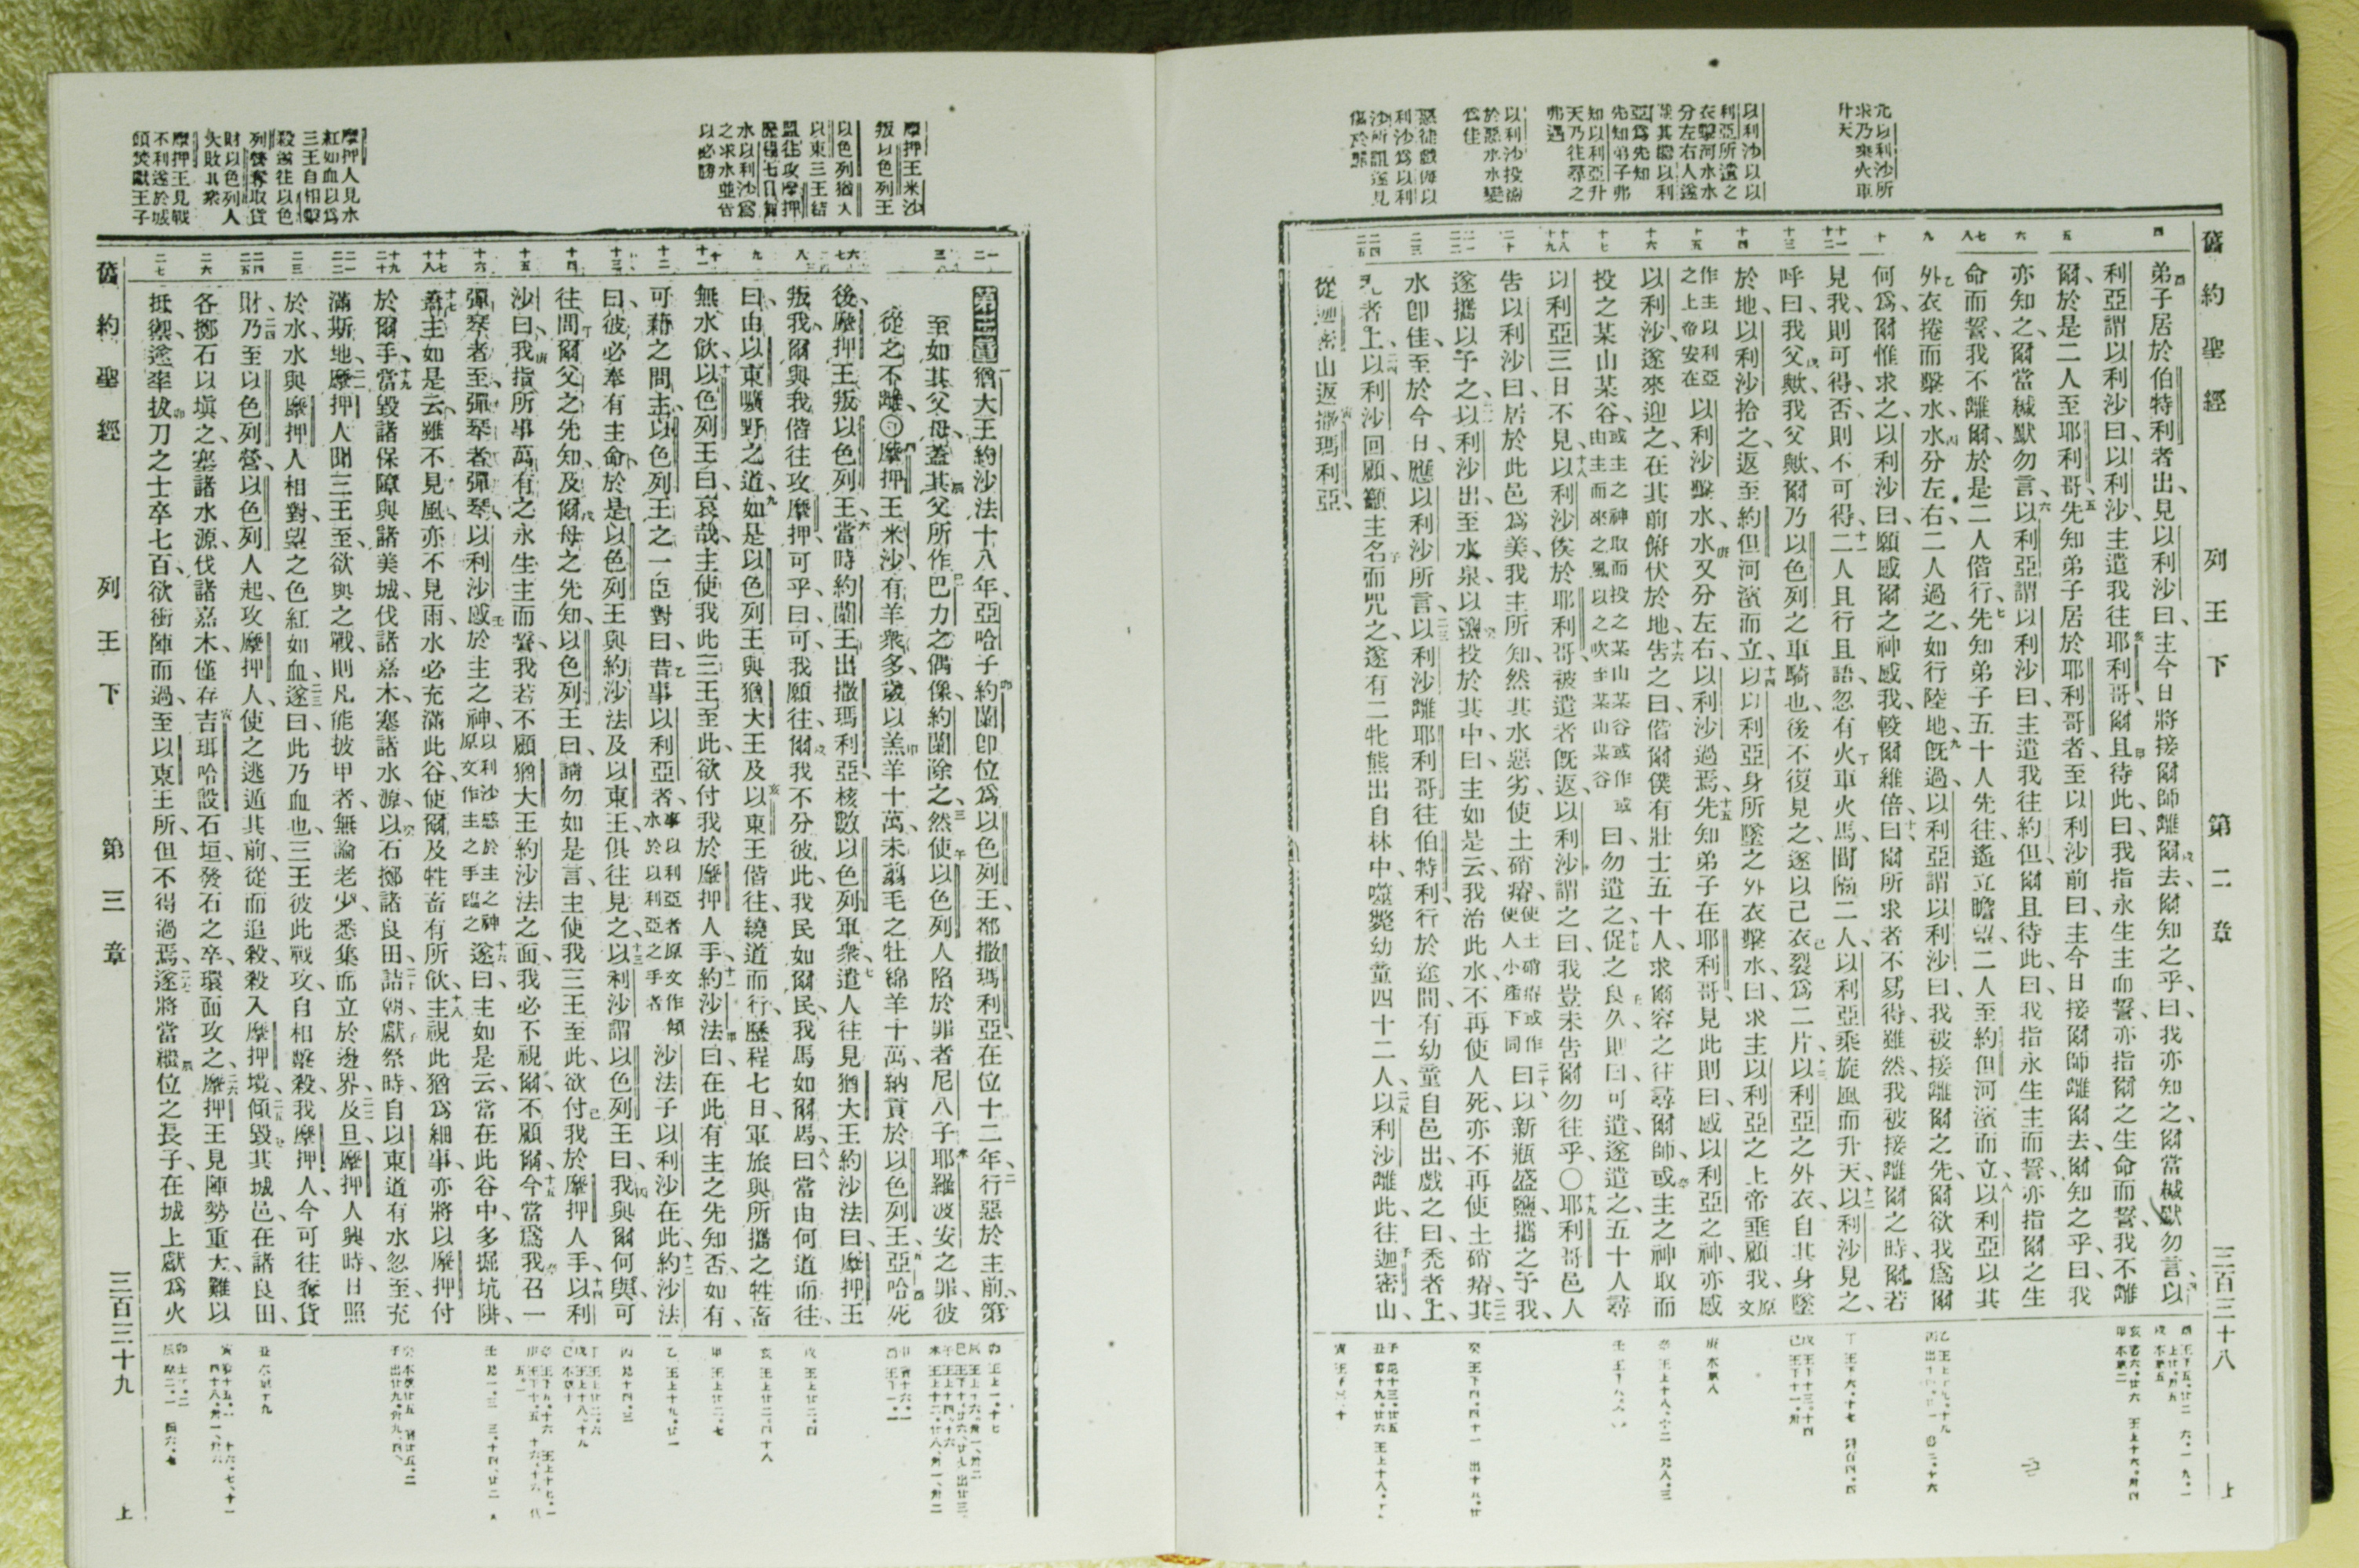 舊約聖經 列王下 第二章 三百三十八 上
以利沙以以
利亞所遺之
衣擊河水水
分左右人遂
先知弟子弗
知以利亞升
天乃往尋之
弗遇
以利沙投鹽
於惡水水變
爲佳
弟子居於伯特利者出見以利沙曰主今日將接爾師離爾去爾知之乎曰我亦知之爾當緘默勿言以
利亞謂以利沙曰以利沙主遣我往耶利哥爾且待此曰我指永生主而誓亦指爾之生命而誓我不離
爾於是二人至耶利哥先知弟子居於耶利哥者至以利沙前曰主今日接爾師離爾去爾知之乎曰我
亦知之爾當緘默勿言以利亞謂以利沙曰主遣我往約但爾且待此曰我指永生主而誓亦指爾之生
命而誓我不離爾於是二人偕行先知弟子五十人先往遙立瞻望二人至約但河濱而立以利亞以其
外衣捲而擊水水分左右二人過之如行陸地旣過以利亞謂以利沙曰我被接離爾之先爾欲我爲爾
何爲爾惟求之以利沙曰願感爾之神感我較爾維倍曰爾所求者不易得雖然我被接離爾之時爾若
見我則可得否則不可得二人且行且語忽有火車火馬間隔二人以利亞乘旋風而升天以利沙見之
呼曰我父歟我父歟爾乃以色列之車騎也後不復見之遂以己衣裂爲二片以利亞之外衣自其身墜
於地以利沙拾之返至約但河濱而立以以利亞身所墜之外衣擊水曰求主以利亞之上帝垂顧我原文
作主以利亞之上帝安在以利沙擊水水又分左右以利沙過焉先知弟子在耶利哥見此則曰感以利亞之神亦感
以利沙遂來迎之在其前俯伏於地告之曰偕爾僕有壯士五十人求爾容之往尋爾師或主之神取而
投之某山某谷或主之神取而投之某山某谷或作或由主而來之風以之吹至某山某谷曰勿遣之促之良久則曰可遣遂遣之五十人尋
以利亞三日不見以利沙俟於耶利哥被遣者旣返以利沙謂之曰我豈未告爾勿往乎〇耶利哥邑人
告以利沙曰居於此邑爲美我主所知然其水惡劣使土磽瘠使土磽瘠或作使人小產下同曰以新瓶盛鹽攜之予我
遂攜以予之以利沙出至水泉以鹽投於其中曰主如是云我治此水不再使人死亦不再使土磽瘠其
水卽佳至於今日應以利沙所言以利沙離耶利哥往伯特利行於途間有幼童自邑出戲之曰禿者上
禿者上以利沙回顧籲主名而咒之遂有二牝熊出自林中噬斃幼童四十二人以利沙離此往迦密山
從迦密山返撒瑪利亞
摩押王米沙
叛以色列王
以色列猶大
以東三王結
盟往攻摩押
水以利沙爲
之求水並告
以必勝
摩押人見水
紅如血以爲
三王自相擊
殺遂往以色
列營奪取貨
財以色列人
大敗其衆
摩押王見戰
不利遂於城
頭焚獻王子
第三章 猶大王約沙法十八年亞哈子約蘭卽位爲以色列王都撒瑪利亞在位十二年行惡於主前第
至如其父母蓋其父所作巴力之偶像約蘭除之然使以色列人陷於罪者尼八子耶羅波安之罪彼
從之不離〇摩押王米沙有羊衆多歲以羔羊十萬未翦毛之牡綿羊十萬納貢於以色列王亞哈死
後摩押王叛以色列王當時約蘭王出撒瑪利亞核數以色列軍衆遣人往見猶大王約沙法曰摩押王
叛我爾與我偕往攻摩押可乎曰可我願往爾我不分彼此我民如爾民我馬如爾馬曰當由何道而往
曰由以東曠野之道如是以色列王與猶大王及以東王偕往繞道而行歷程七日軍旅與所攜之牲畜
無水飲以色列王曰哀哉主使我此三王至此欲付我於摩押人手約沙法曰在此有主之先知否如有
可藉之問主以色列王之一臣對曰昔事以利亞者事以利亞者原文作傾水於以利亞之手者沙法子以利沙在此約沙法
曰彼必奉有主命於是以色列王與約沙法及以東王俱往見之以利沙謂以色列王曰我與爾何與可
往問爾父之先知及爾母之先知以色列王曰請勿如是言主使我三王至此欲付我於摩押人手以利
沙曰我指所事萬有之永生主而誓我若不顧猶大王約沙法之面我必不視爾不顧爾今當爲我召一
彈琴者至彈琴者彈琴以利沙感於主之神以利沙感於主之神原文作主之手臨之遂曰主如是云當在此谷中多掘坑阱
蓋主如是云雖不見風亦不見雨水必充滿此谷使爾及牲畜有所飲主視此猶爲細事亦將以摩押付
於爾手當毀諸保障與諸美城伐諸嘉木塞諸水源以石擲諸良田詰朝獻祭時自以東道有水忽至充
滿斯地摩押人聞三王至欲與之戰則凡能披甲者無論老少悉集而立於邊界及旦摩押人興時日照
於水水與摩押人相對望之色紅如血遂曰此乃血也三王彼此戰攻自相擊殺我摩押人今可往奪貨
財乃至以色列營以色列人起攻摩押人使之逃遁其前從而追殺殺入摩押境傾毀其城邑在諸良田
各擲石以塡之塞諸水源伐諸嘉木僅存吉珥哈設石垣發石之卒環面攻之摩押王見陣勢重大難以
抵禦遂率拔刀之士卒七百欲衝陣而過至以東王所但不得過焉遂將當繼位之長子在城上獻爲火
舊約聖經 列王下 第三章 三百三十九 上